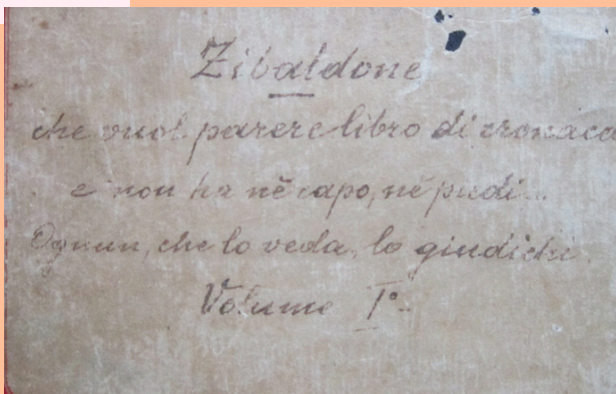 Zibaldone
che vuol parere libro di cronaca
e non ha nè capo, nè piedi...
Ognun, che lo veda, lo giudichi.
Volume Iº.